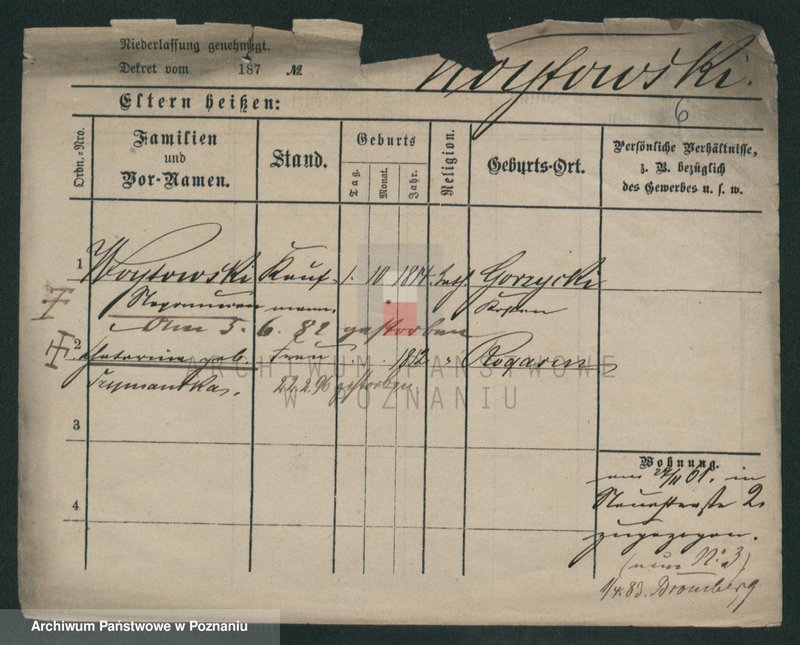 Niederlassung genehmigt.
Dekret vom 187 №
Woytowski.
6
Eltern heißen:
Ordn.-Nro.
Familien und Vor-Namen.
Stand.
Geburts
Tag.
Monat.
Jahr.
Religion.
Geburts-Ort.
Persönliche Verhältnisse, z. B. bezüglich des Gewerbes u. s. w.
1 Woytowski Kauf- 1. 10 1814 kath. Gorzycki
Nepomucen mann. Kosten
Am 5. 6. 82 gestorben
2 Catarina geb. Frau 1812 " Rogasen
22.2.96 gestorben
3
4
Wohnung.
am in
2.
zugezogen.
(neue No. 3)
1/4.83. Bromberg
ARCHIWUM PAŃSTWOWE
W POZNANIU
Archiwum Państwowe w Poznaniu